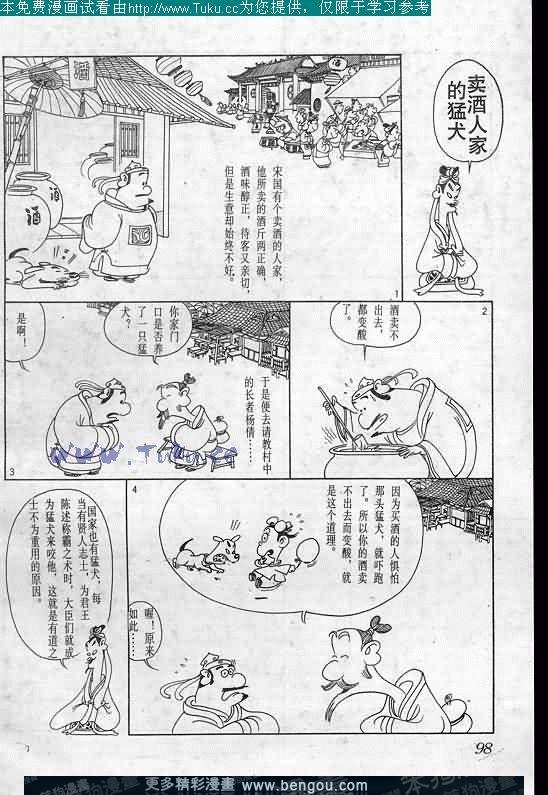 本免费漫画试看由http://www.Tuku.cc为您提供，仅限于学习参考
卖酒人家
的猛犬
酒
酒
酒
宋国有个卖酒的人家，
他所卖的酒斤两正确，
酒味醇正，待客又亲切，
但是生意却始终不好。
1
酒卖不
出去，
都变酸
了。
2
于是便去请教村中
的长者杨倩……
你家门
口是否养
了一只猛
犬？
是啊！
3
www.Tuku.cc
因为买酒的人惧怕
那头猛犬，就吓跑
了。所以你的酒卖
不出去而变酸，就
是这个道理。
喔！原来
如此……
4
国家也有猛犬，每
当有贤人志士，为君王
陈述称霸之术时，大臣们就成
为猛犬来咬他，这就是有道之
士不为重用的原因。
98
更多精彩漫畫
www.bengou.com